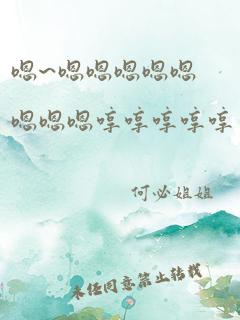 嗯~嗯嗯嗯嗯嗯
嗯嗯嗯哼哼哼哼哼
何必姐姐
未经同意禁止转载